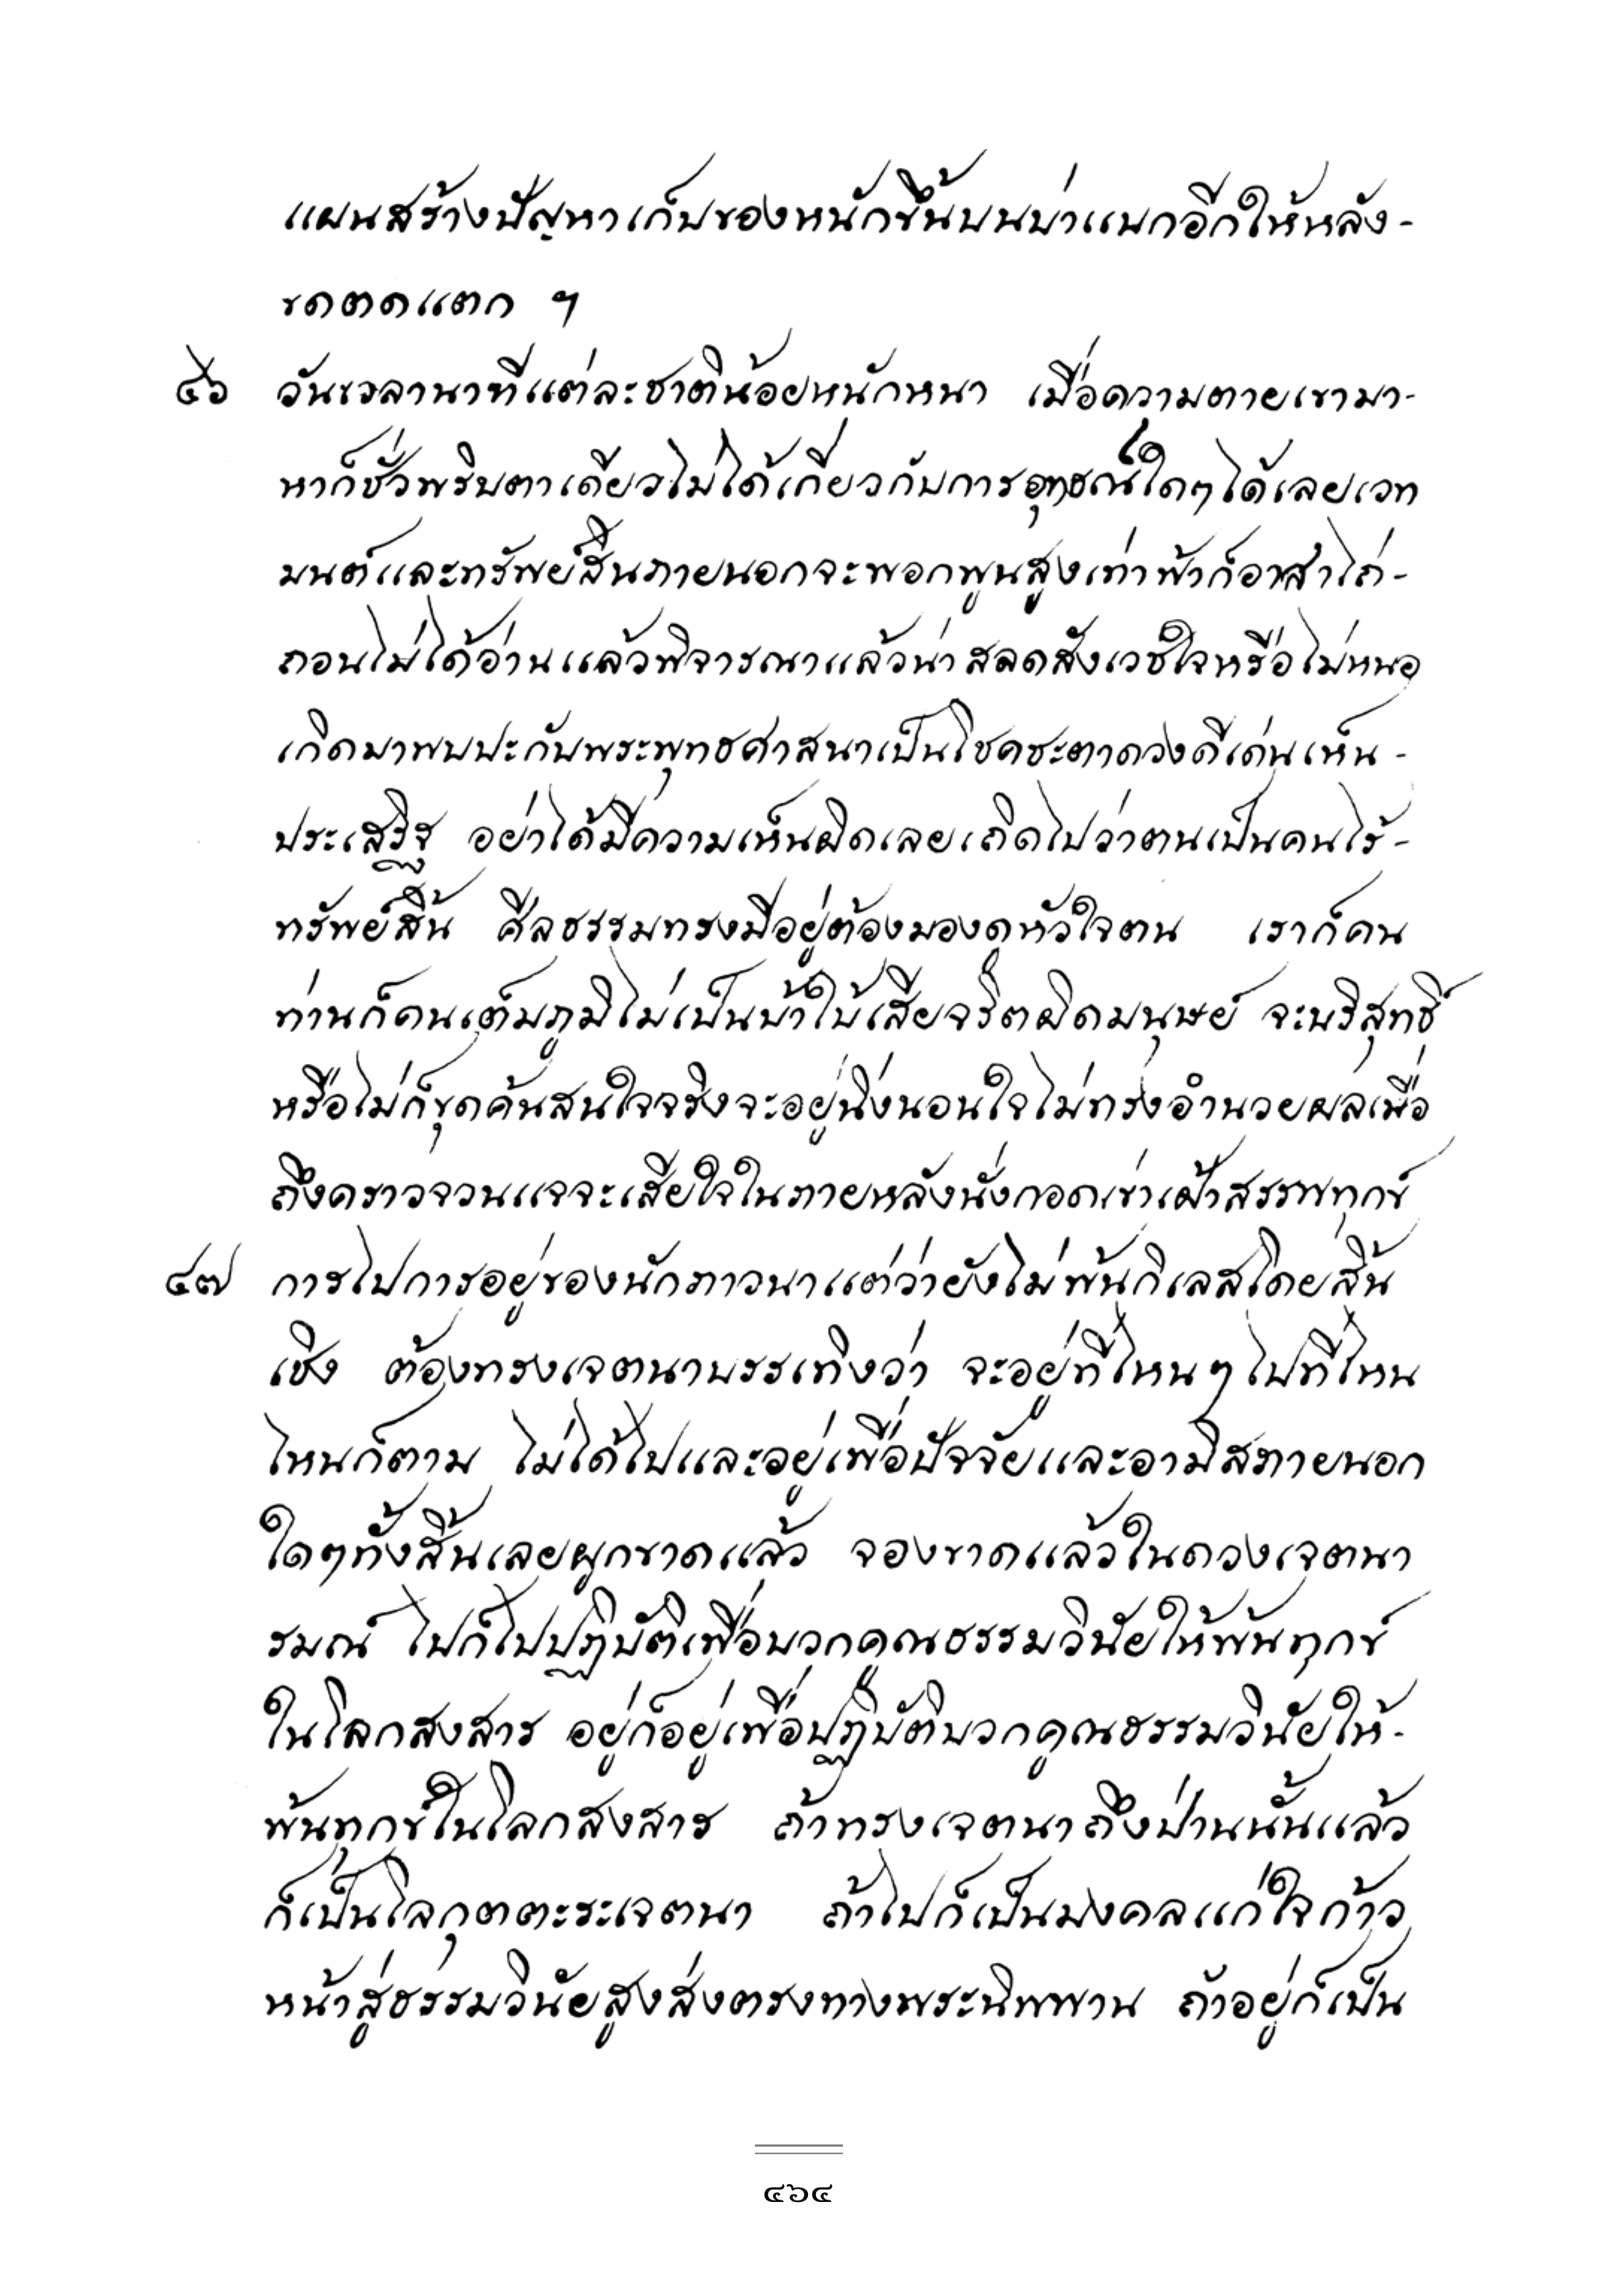 แผนสร้างปัญหาเก็บของหนักขึ้นบนบ่าแบกอีกให้หลัง-
ขดตดแตก ฯ
๔๖ วันเวลานาทีแต่ละชาติน้อยหนักหนา เมื่อความตายเขามา-
หาก็ชั่วพริบตาเดียวไม่ได้เกี่ยวกับการอุทธรณ์ใดๆได้เลยเวท
มนต์และทรัพย์สินภายนอกจะพอกพูนสูงเท่าฟ้าก็อาสาไถ่-
ถอนไม่ได้อ่านแล้วพิจารณาแล้วน่าสลดสังเวชใจหรือไม่หนอ
เกิดมาพบปะกับพระพุทธศาสนาเป็นโชคชะตาดวงดีเด่นเห็น-
ประเสริฐ อย่าได้มีความเห็นผิดเลยเถิดไปว่าตนเป็นคนไร้-
ทรัพย์สิ้น ศีลธรรมทรงมีอยู่ต้องมองดูหัวใจตน เราก็คน
ท่านก็คนเต็มภูมิไม่เป็นบ้าใบ้เสียจริตผิดมนุษย์ จะบริสุทธิ์
หรือไม่ก็ขุดค้นสนใจจริงจะอยู่นิ่งนอนใจไม่ทรงอำนวยผลเมื่อ
ถึงคราวจวนแจจะเสียใจในภายหลังนั่งกอดเข่าเฝ้าสรรพทุกข์
๔๗ การไปการอยู่ของนักภาวนาแต่ว่ายังไม่พ้นกิเลสโดยสิ้น
เชิง ต้องทรงเจตนาบรรเทิงว่า จะอยู่ที่ไหนๆไปที่ไหน
ไหนก็ตาม ไม่ได้ไปและอยู่เพื่อปัจจัยและอามิสภายนอก
ใดๆทั้งสิ้นเลยผูกขาดแล้ว จองขาดแล้วในดวงเจตนา
รมณ์ ไปก็ไปปฏิบัติเพื่อบวกคูณธรรมวินัยให้พ้นทุกข์
ในโลกสงสาร อยู่ก็อยู่เพื่อปฏิบัติบวกคูณธรรมวินัยให้-
พ้นทุกข์ในโลกสงสาร ถ้าทรงเจตนาถึงป่านนั้นแล้ว
ก็เป็นโลกุตตะระเจตนา ถ้าไปก็เป็นมงคลแก่ใจก้าว
หน้าสู่ธรรมวินัยสูงส่งตรงทางพระนิพพาน ถ้าอยู่ก็เป็น
๔๖๔